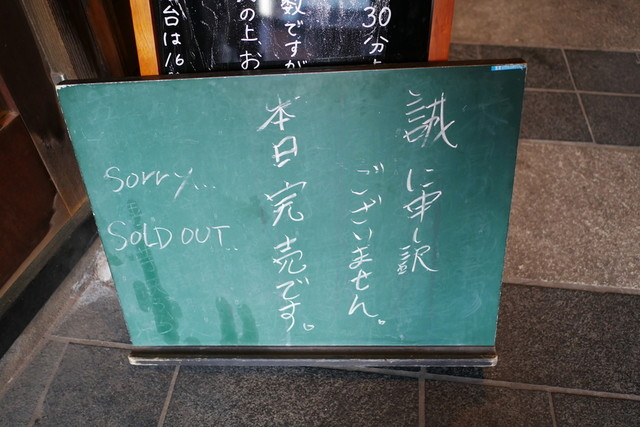 30分
数ですが
の上、お
台は16
誠に申し訳
ございません。
本日完売です。
Sorry...
SOLD OUT..